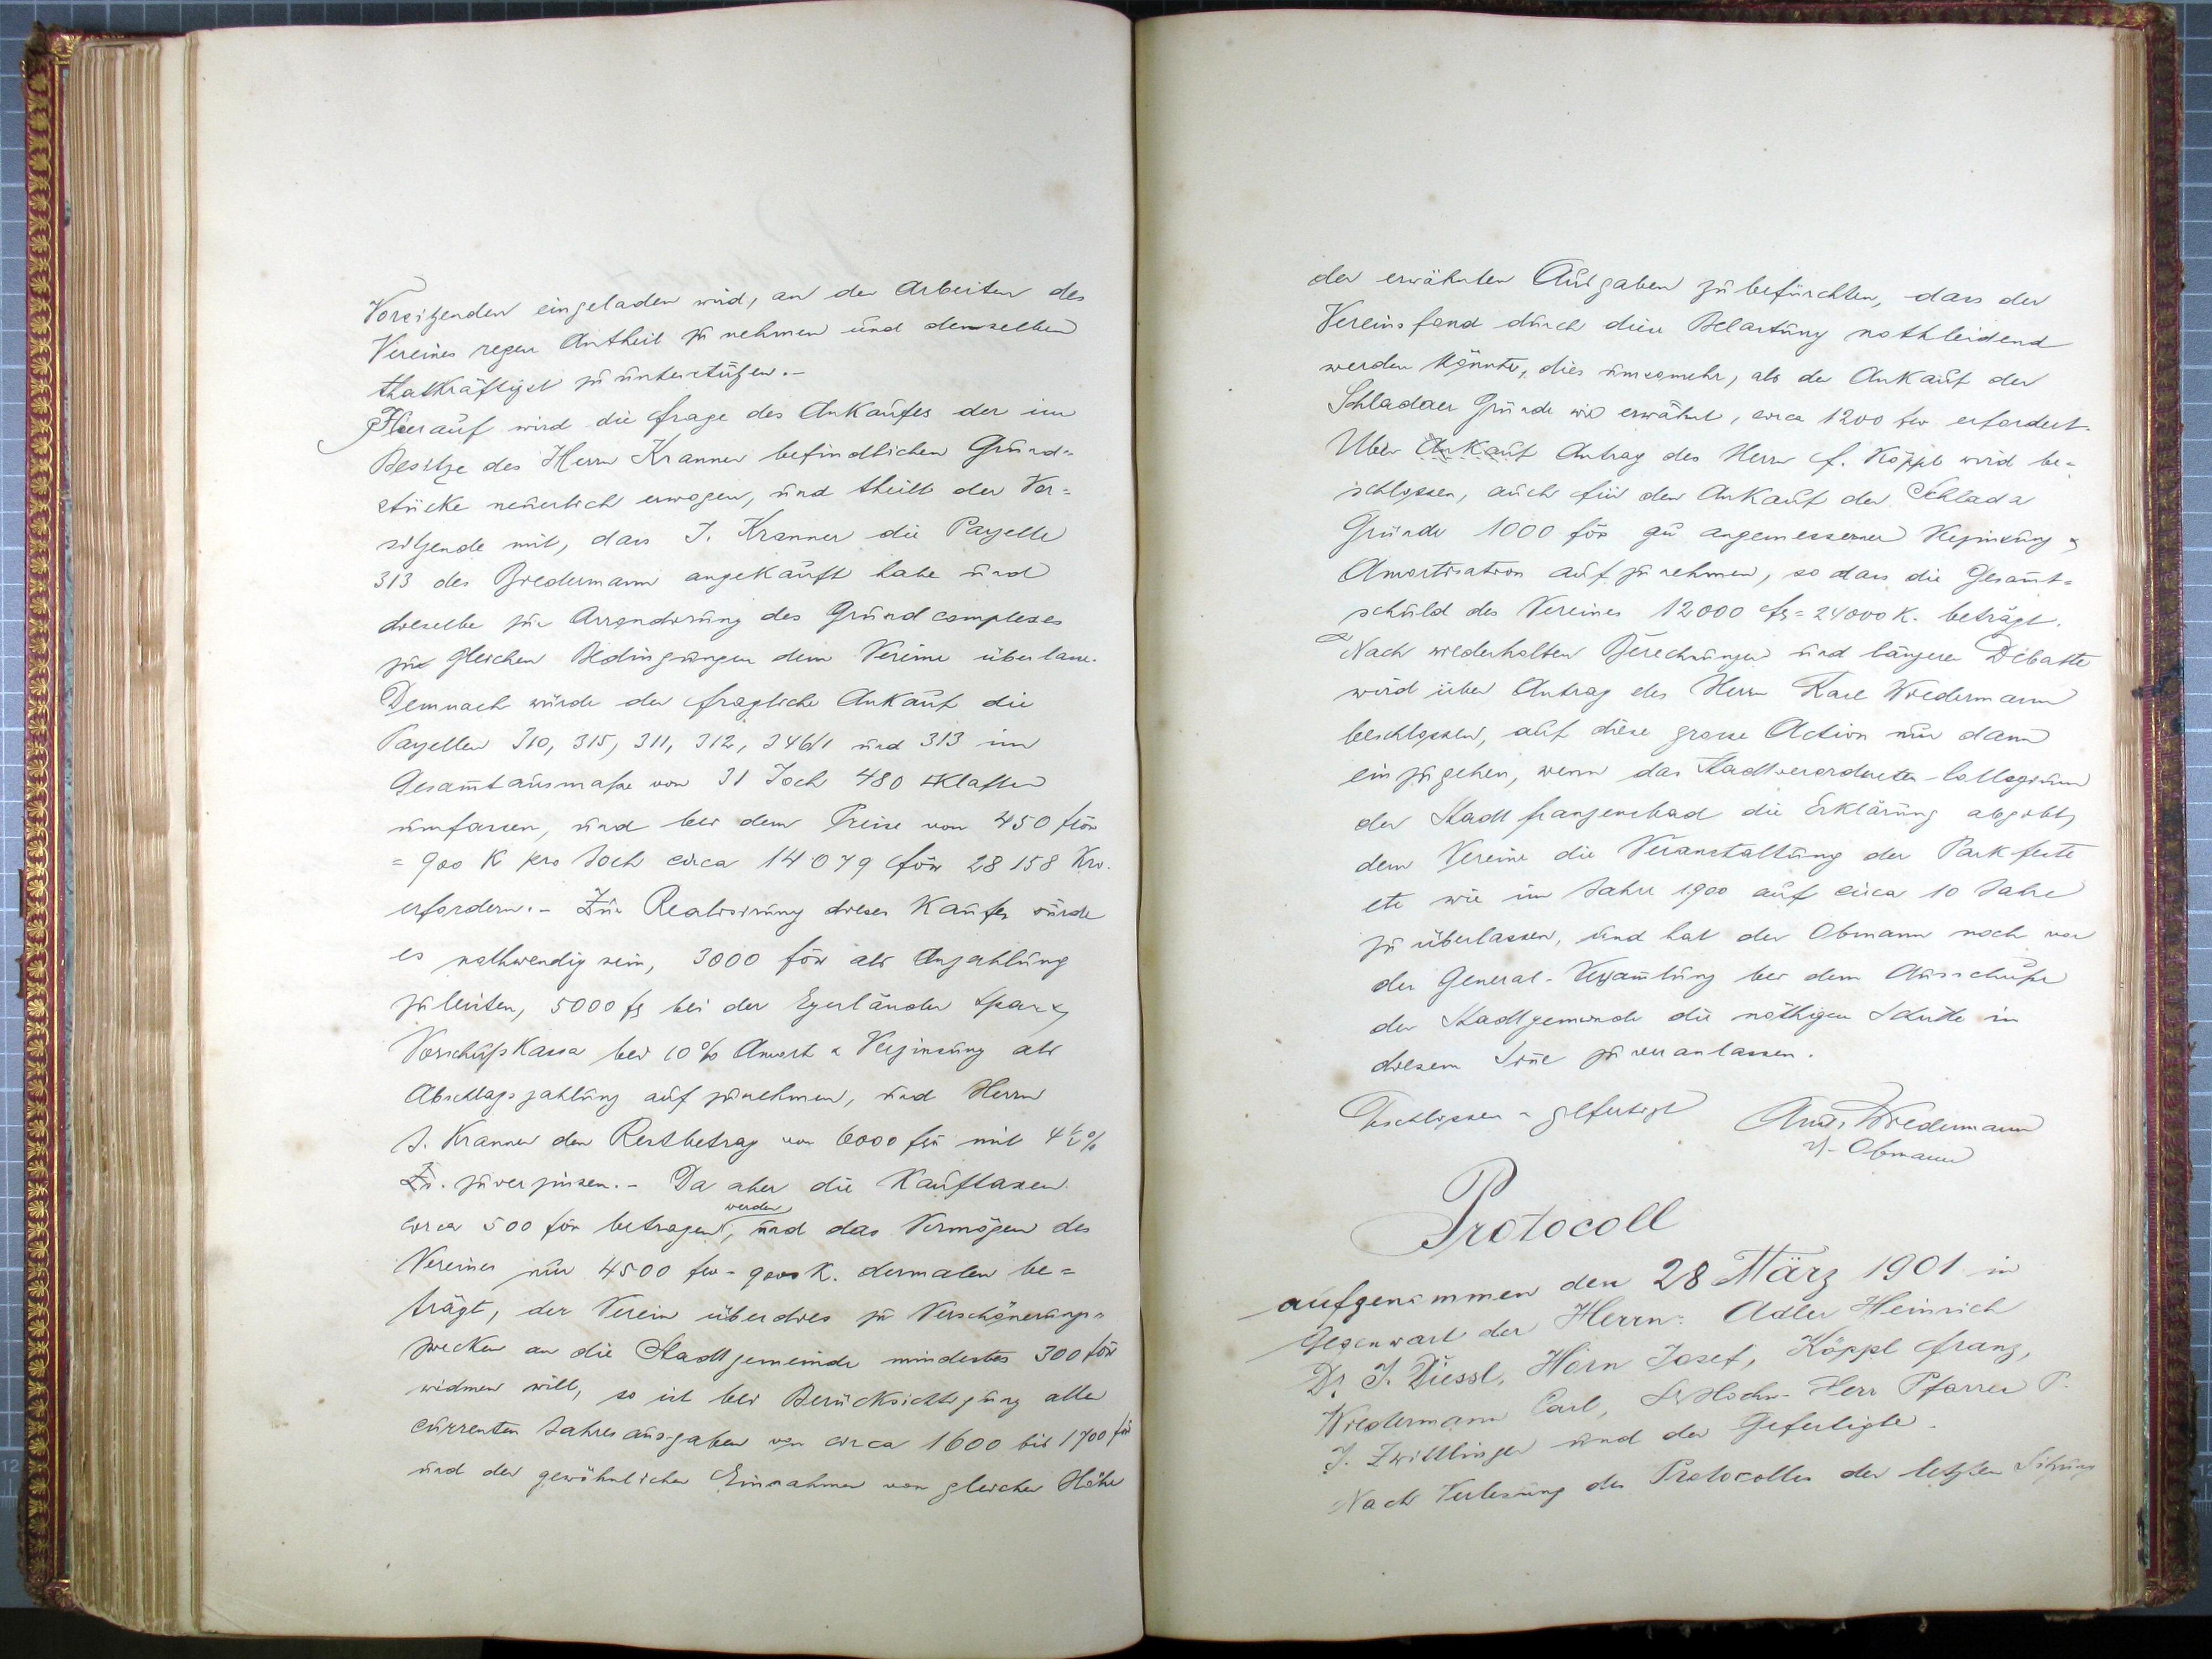 Vorsitzenden eingeladen wird, an den Arbeiten des
Vereines regen Antheil zu nehmen und denselben
thatkräftigst zu unterstützen.-
Hierauf wird die Frage des Ankaufes der im
Besitze des Herrn Kranner befindlichen Grund=
stücke neuerlich erwogen, und theilt der Vor=
sitzende mit, dass J. Kranner die Parzelle
313 des Biedermann angekauft habe und
dieselbe zur Arrondirung des Grundcomplexes
zu gleichen Bedingungen dem Vereine überlasse.
Demnach würde der fragliche Ankauf die
Parzellen 310, 315, 311, 312, 346/1 und 313 im
Gesam̅tausmaße von 31 Joch 480 □Klafter
umfassen, und bei dem Preise von 450 flör
= 900 K pro Joch circa 14079 flör 28158 Kro.
erfordern.- Zur Realisirung dieses Kaufes würde
es nothwendig sein, 3000 flör als Anzahlung
zu leisten, 5000 fl bei der Egerländer Spar &
Vorschußkassa bei 10% Amort & Verzinsung als
Abschlagszahlung aufzunehmen, und Herrn
J. Kranner den Restbetrag von 6000 flör mit 4½%
zu verzinsen.- Da aber die Kauftaxen
circa 500 flör betragen werden, und das Vermögen des
Vereines nur 4500 flr - 9000 K. dermalen be=
trägt, der Verein überdies zu Verschönerungs=
zwecken an die Stadtgemeinde mindestes 300 flör
widmen will, so ist bei Berücksichtigung aller
currenten Jahresausgaben von circa 1600 bis 1700 flör
und der gewöhnlichen Einnahmen von gleicher Höhe
der erwähnten Ausgaben zu befürchten, dass der
Vereinsfond durch diese Belastung nothleidend
werden könnte, dies umsomehr, als der Ankauf der
Schladaer Gründe wie erwähnt, circa 1200 flr erfordert.
Über Ankauf Antrag des Herrn F. Köppl wird be=
schlossen, auch für den Ankauf der Schlada
Gründe 1000 flör zu angemessener Verzinsung &
Amortisation aufzunehmen, so dass die Gesam̅t=
schuld des Vereines 12000 fl = 24000 K. beträgt.
Nach wiederholten Berechnungen und längerer Debatte
wird über Antrag des Herrn Karl Wiedermann
beschlossen, auf diese grosse Action nur dann
einzugehen, wenn das Stadtverordneten-Collegium
der Stadt Franzensbad die Erklärung abgibt,
dem Vereine die Veranstaltung der Parkfeste
etc wie im Jahre 1900 auf circa 10 Jahre
zu überlassen, und hat der Obmann noch vor
der General-Versam̅lung bei dem Ausschuße
der Stadtgemeinde die nöthigen Schritte in
diesem Sin̅e zu veranlassen.
Geschlossen & gefertigt Ant. Wiedermann
Obmann
Protocoll
aufgenommen den 28 März 1901 in
Gegenwart der Herrn: Adler Heinrich
Dr J. Diessl, Horn Josef, Köppl Franz,
Wiedermann Carl, Sr Hochw- Herr Pfarrer P.
J. Zwittlinger und der Gefertigte.
Nach Verlesung des Protocolles der letzten Sitzung